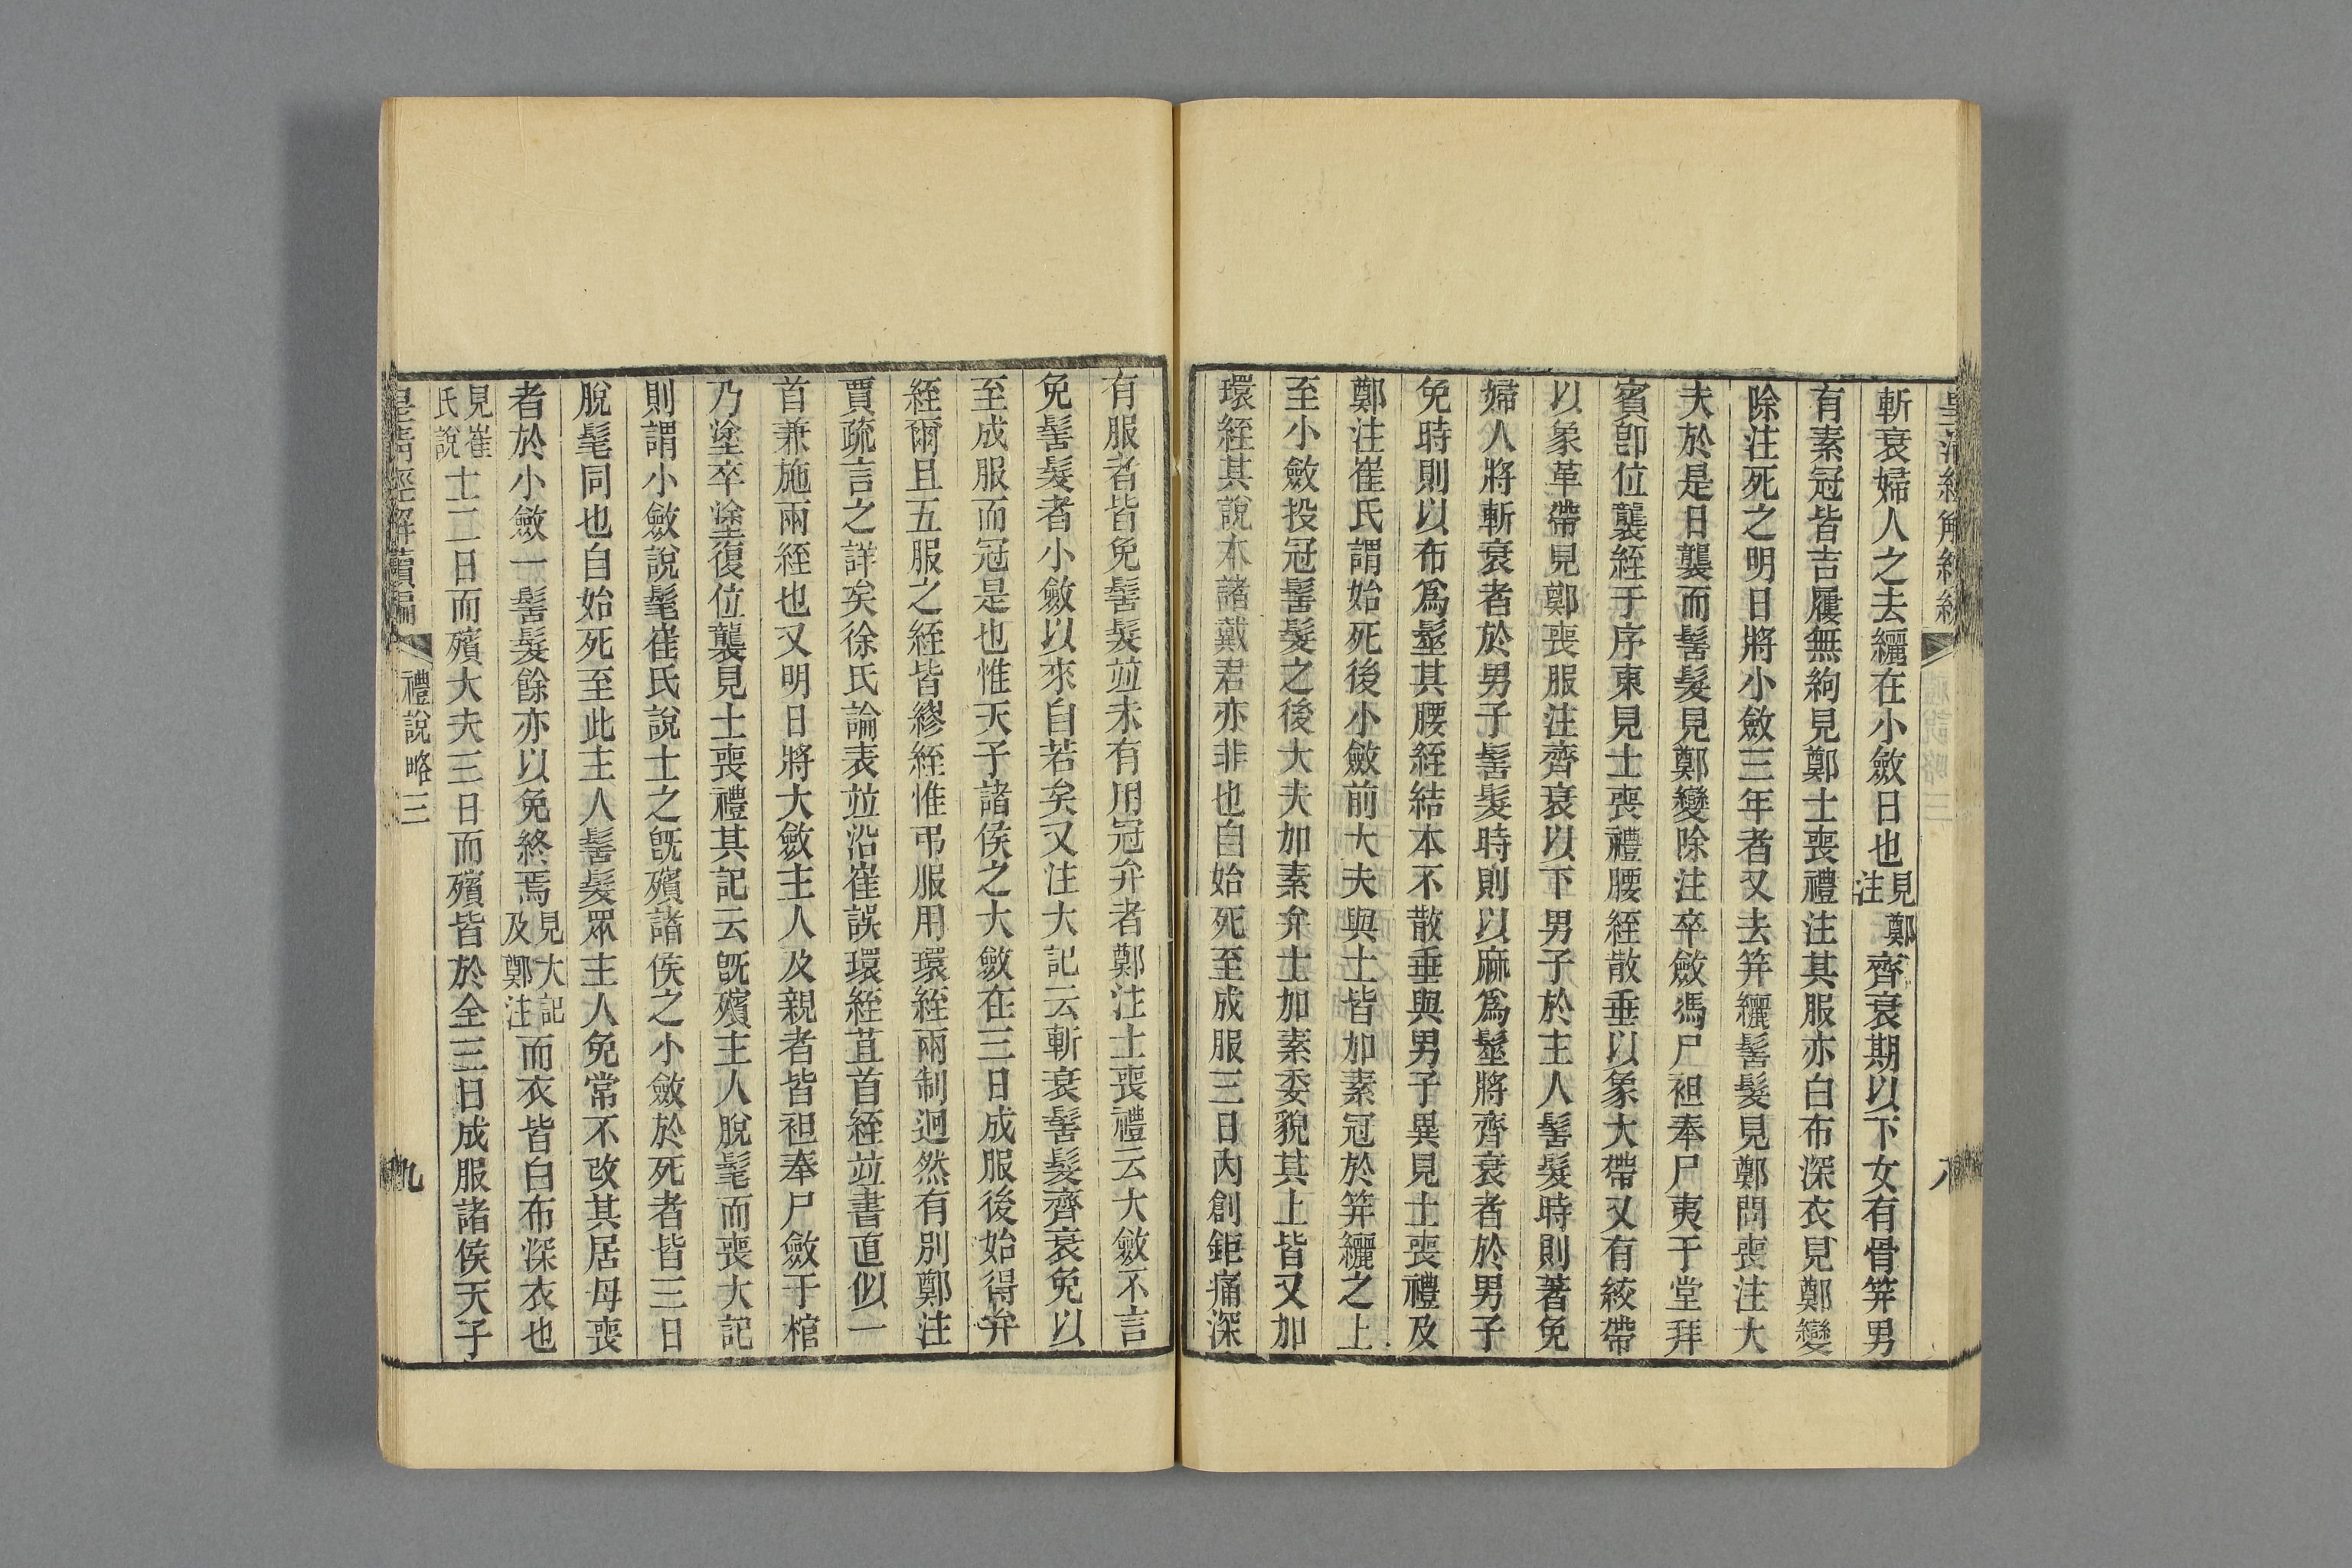 斬衰婦人之去纚在小斂日也見鄭注齊衰期以下女有骨笄男
有素冠皆吉屨無絇見鄭士喪禮注其服亦白布深衣見鄭變
除注死之明日將小斂三年者又去笄纚髻髮見鄭問喪注大
夫於是日襲而髻髮見鄭變除注卒斂馮尸袒奉尸夷于堂拜
賓卽位襲絰于序東見士喪禮腰絰散垂以象大帶又有絞帶
以象革帶見鄭喪服注齊衰以下男子於主人髻髮時則著免
婦人將斬衰者於男子髻髮時則以麻爲髽將齊衰者於男子
免時則以布爲髽其腰絰結本不散垂與男子異見士喪禮及
鄭注崔氏謂始死後小斂前大夫與士皆加素冠於笄纚之上
至小斂投冠髻髮之後大夫加素弁士加素委貌其上皆又加
環絰其說本諸戴君亦非也自始死至成服三日內創鉅痛深
有服者皆免髻髮竝未有用冠弁者鄭注士喪禮云大斂不言
免髻髮者小斂以來自若矣又注大記云斬衰髻髮齊衰免以
至成服而冠是也惟天子諸侯之大斂在三日成服後始得弁
絰爾且五服之絰皆繆絰惟弔服用環絰兩制迥然有別鄭注
賈疏言之詳矣徐氏論表竝沿崔誤環絰苴首絰竝書直似一
首兼施兩絰也又明日將大斂主人及親者皆袒奉尸斂于棺
乃塗卒塗復位襲見士喪禮其記云旣殯主人脫髦而喪大記
則謂小斂說髦崔氏說士之旣殯諸侯之小斂於死者皆三日
脫髦同也自始死至此主人髻髮眾主人免常不改其居母喪
者於小斂一髻髮餘亦以免終焉見大記及鄭注而衣皆白布深衣也
見崔氏說士二日而殯大夫三日而殯皆於全三日成服諸侯天子
皇清經解續編
禮說略三
九